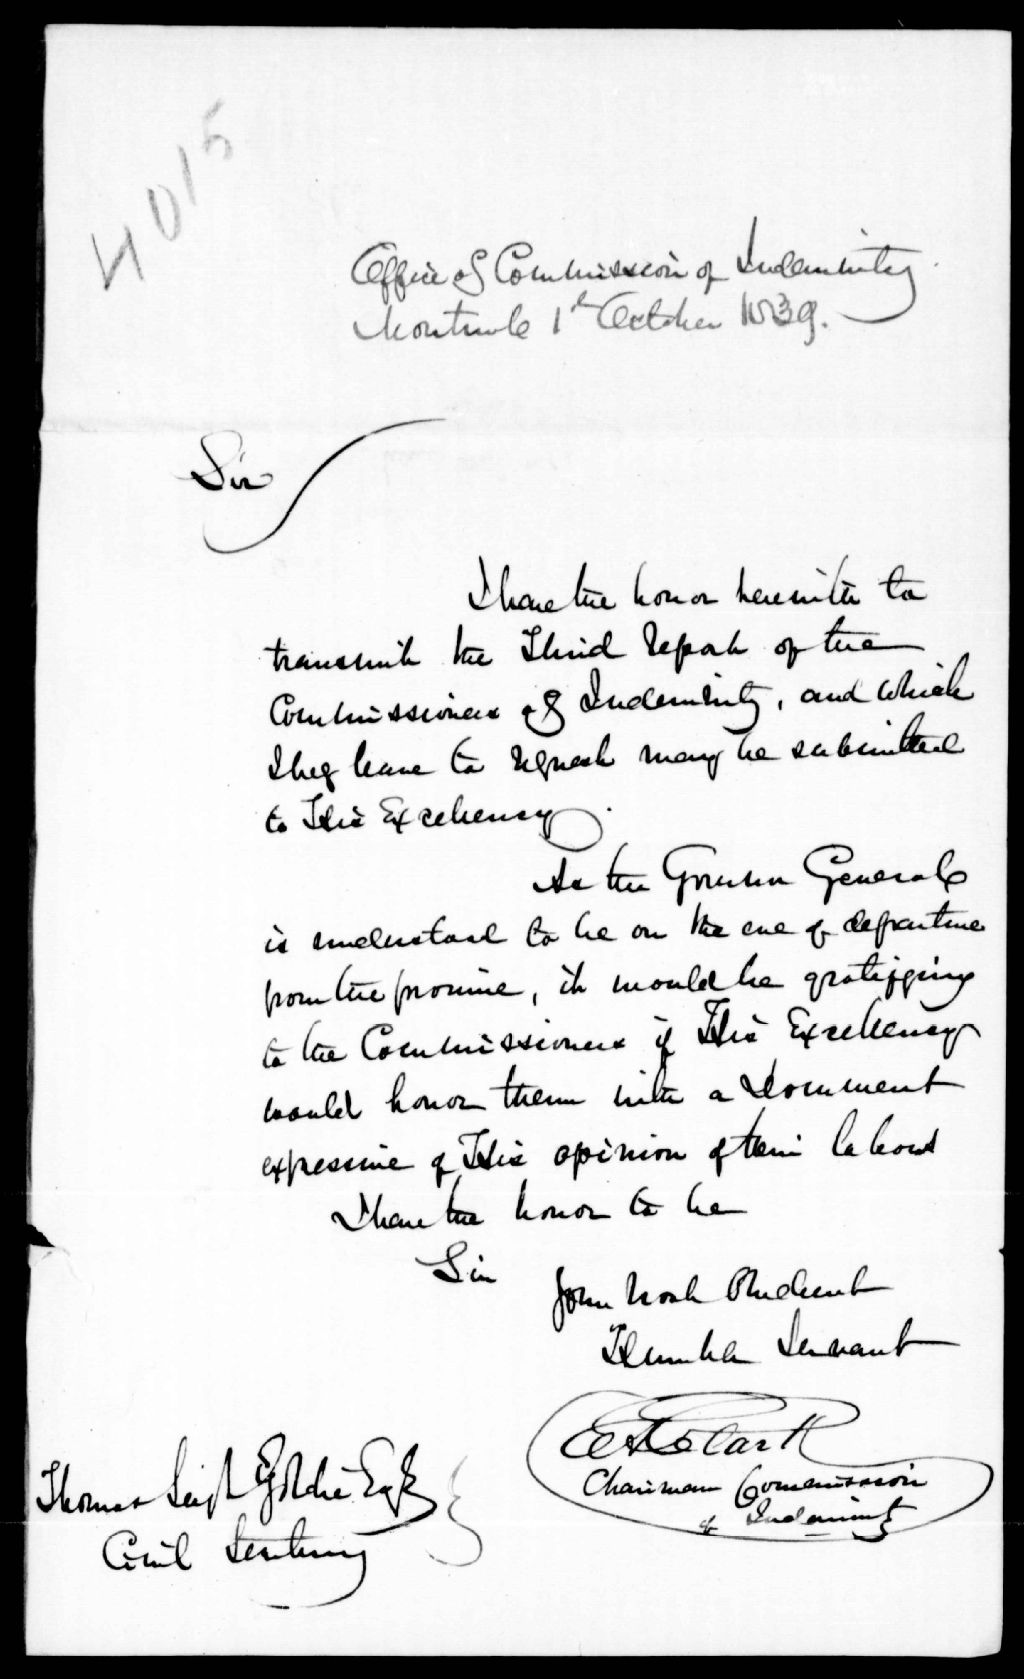 4015
Office of Commission of Indemnity
Montreal 1st October 1839.
Sir
I have the honor herewith to
transmit the Third Report of the
Commissioners of Indemnity, and which
I beg leave to request may be submitted
to His Excellency.
As the Governor General
is understood to be on the eve of departure
from the province, it would be gratifying
to the Commissioners if His Excellency
would honor them with a Document
expressive of His opinion of their labours
I have the honor to be
Sir
Your most Obedient
Humble Servant
Clark
Chairman Commission
of Indemnity
Thomas Leigh Goldie Esqr
Civil Secretary